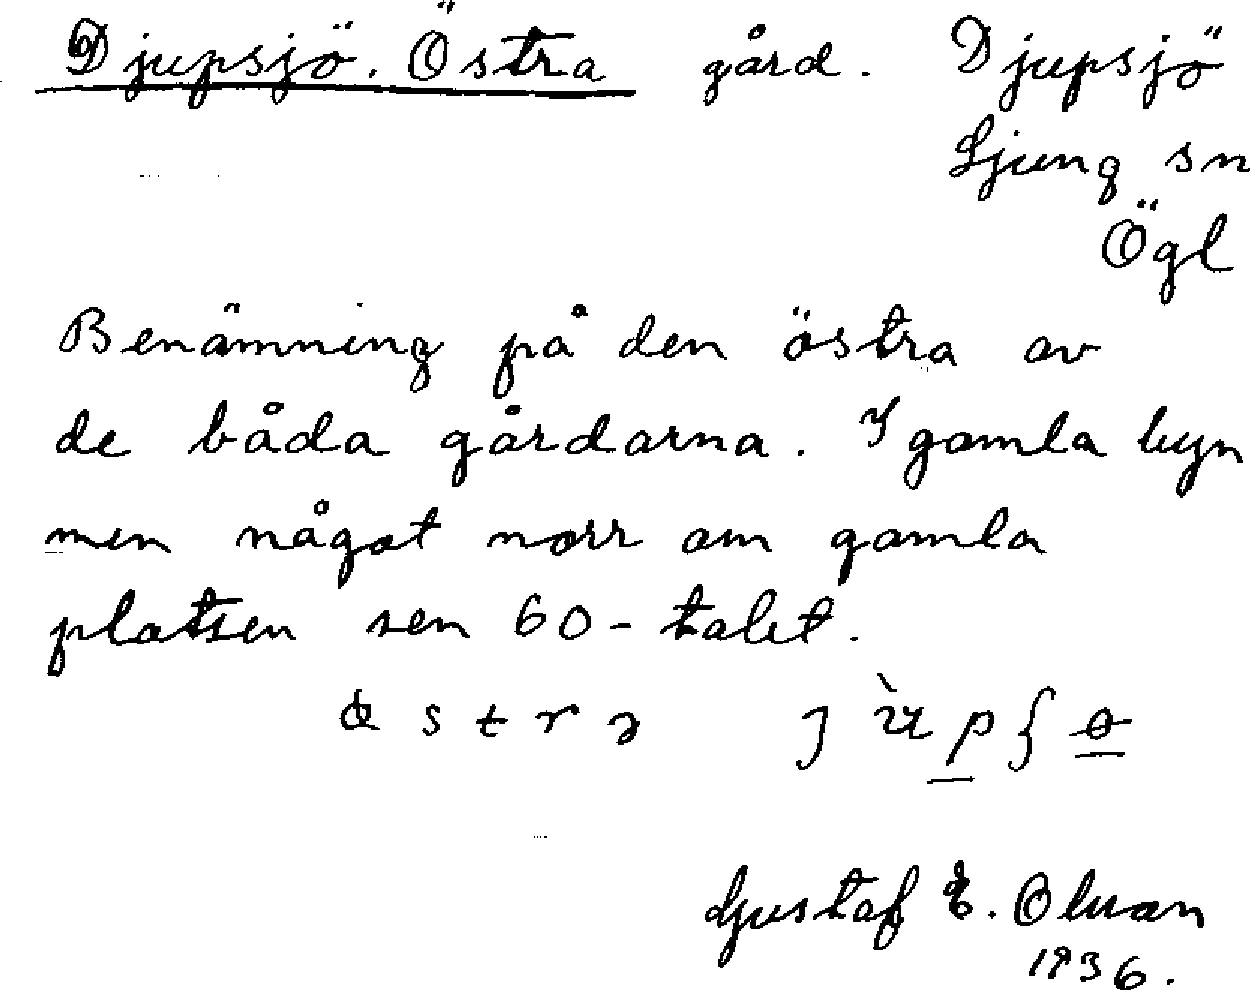 Djupsjö. Östra gård. Djupsjö
Ljung sn
Ögl
Benämning på den östra av
de båda gårdarna. I gamla byn
men något norr om gamla
platsen sen 60-talet.
Gustaf E.
1936.